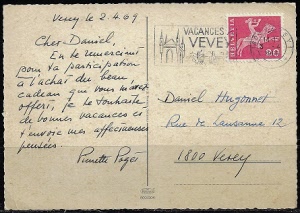 Vevey le 2.4.69
Cher Daniel,
En te remerciant
pour ta participation
à l'achat du beau
cadeau que vous m'avez
offert, je te souhaite
de bonnes vacances et
t'envoie mes affectueuses
pensées.
VACANCES
VEVEY
HELVETIA
20
Daniel Hugonnet
Rue de Lausanne 12
1800 Vevey